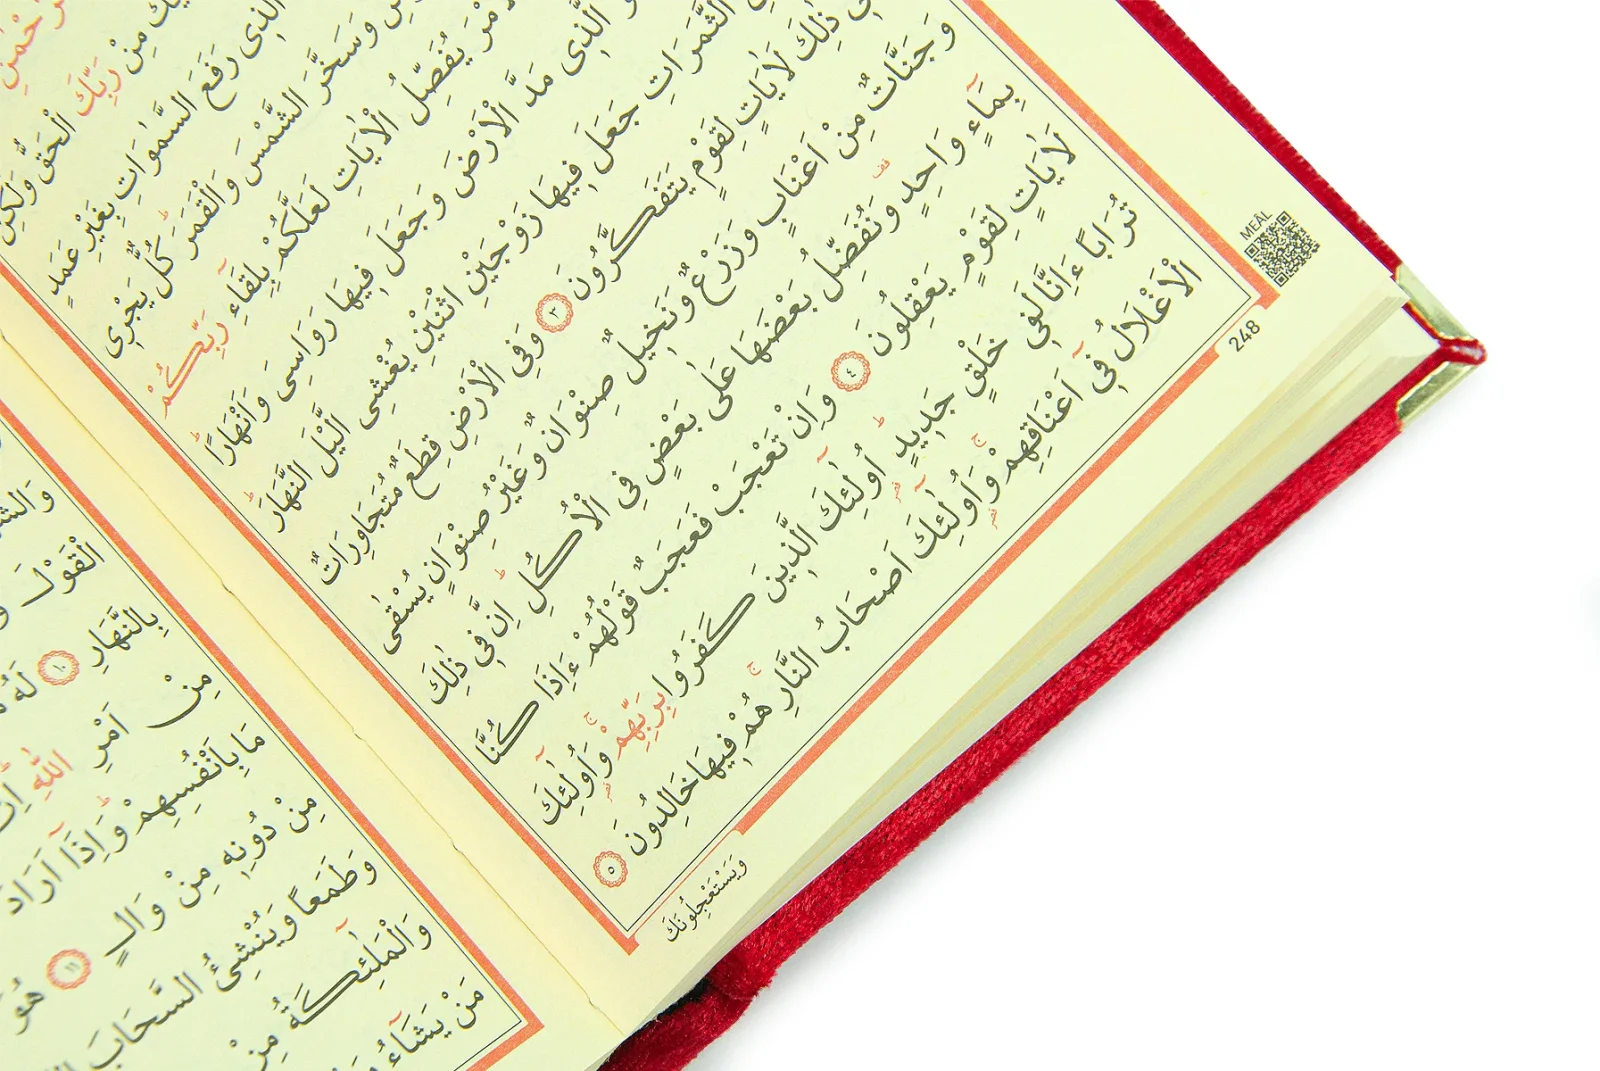 مِنْ رَبِّكَ الْحَقُّ وَلٰكِنَّ
الَّذٖى رَفَعَ السَّمٰوَاتِ بِغَيْرِ عَمَدٍ
وَسَخَّرَ الشَّمْسَ وَالْقَمَرَ كُلٌّ يَجْرٖى
يُفَصِّلُ الْاٰيَاتِ لَعَلَّكُمْ بِلِقَٓاءِ رَبِّكُمْ
الَّذٖى مَدَّ الْاَرْضَ وَجَعَلَ فٖيهَا رَوَاسِىَ وَاَنْهَارًا
الثَّمَرَاتِ جَعَلَ فٖيهَا زَوْجَيْنِ اثْنَيْنِ يُغْشِى الَّيْلَ النَّهَارَ
ذٰلِكَ لَاٰيَاتٍ لِقَوْمٍ يَتَفَكَّرُونَ ٣ وَفِى الْاَرْضِ قِطَعٌ مُتَجَاوِرَاتٌ
وَجَنَّاتٌ مِنْ اَعْنَابٍ وَزَرْعٌ وَنَخٖيلٌ صِنْوَانٌ وَغَيْرُ صِنْوَانٍ يُسْقٰى
بِمَٓاءٍ وَاحِدٍ وَنُفَضِّلُ بَعْضَهَا عَلٰى بَعْضٍ فِى الْاُكُلِ اِنَّ فٖى ذٰلِكَ
لَاٰيَاتٍ لِقَوْمٍ يَعْقِلُونَ ٤ وَاِنْ تَعْجَبْ فَعَجَبٌ قَوْلُهُمْ ءَاِذَا كُنَّا
تُرَابًا ءَاِنَّا لَفٖى خَلْقٍ جَدٖيدٍ اُو۬لٰٓئِكَ الَّذٖينَ كَفَرُوا بِرَبِّهِمْ وَاُو۬لٰٓئِكَ
الْاَغْلَالُ فٖٓى اَعْنَاقِهِمْ وَاُو۬لٰٓئِكَ اَصْحَابُ النَّارِ هُمْ فٖيهَا خَالِدُونَ ٥
وَيَسْتَعْجِلُونَكَ
248
MEÂL
الْقَوْلَ
بِالنَّهَارِ ١٠ لَهُ
مِنْ اَمْرِ اللّٰهِ
مَا بِاَنْفُسِهِمْ وَاِذَٓا اَرَادَ
مِنْ دُونِهٖ مِنْ وَالٍ ١١ هُوَ
وَطَمَعًا وَيُنْشِئُ السَّحَابَ
وَالْمَلٰٓئِكَةُ مِنْ
مَنْ يَشَٓاءُ